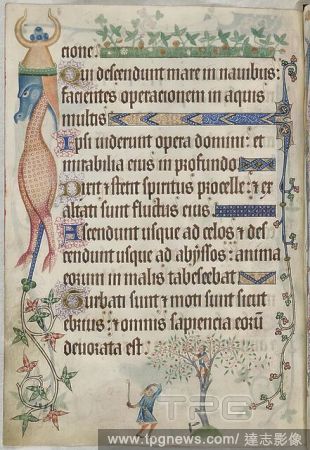 cione.
Qui descendunt mare in nauibus:
facientes operacionem in aquis
multis
Ipsi uiderunt opera domini: et
mirabilia eius in profundo
Dixit & stetit spiritus procelle: & ex
altati sunt fluctus eius
Ascendunt usque ad celos & des
cendunt usque ad abissos: anima
eorum in malis tabescebat
Turbati sunt & moti sunt sicut
ebrius: & omnis sapiencia eorum
deuorata est.
TPG
www.tpgnews.com/達志影像